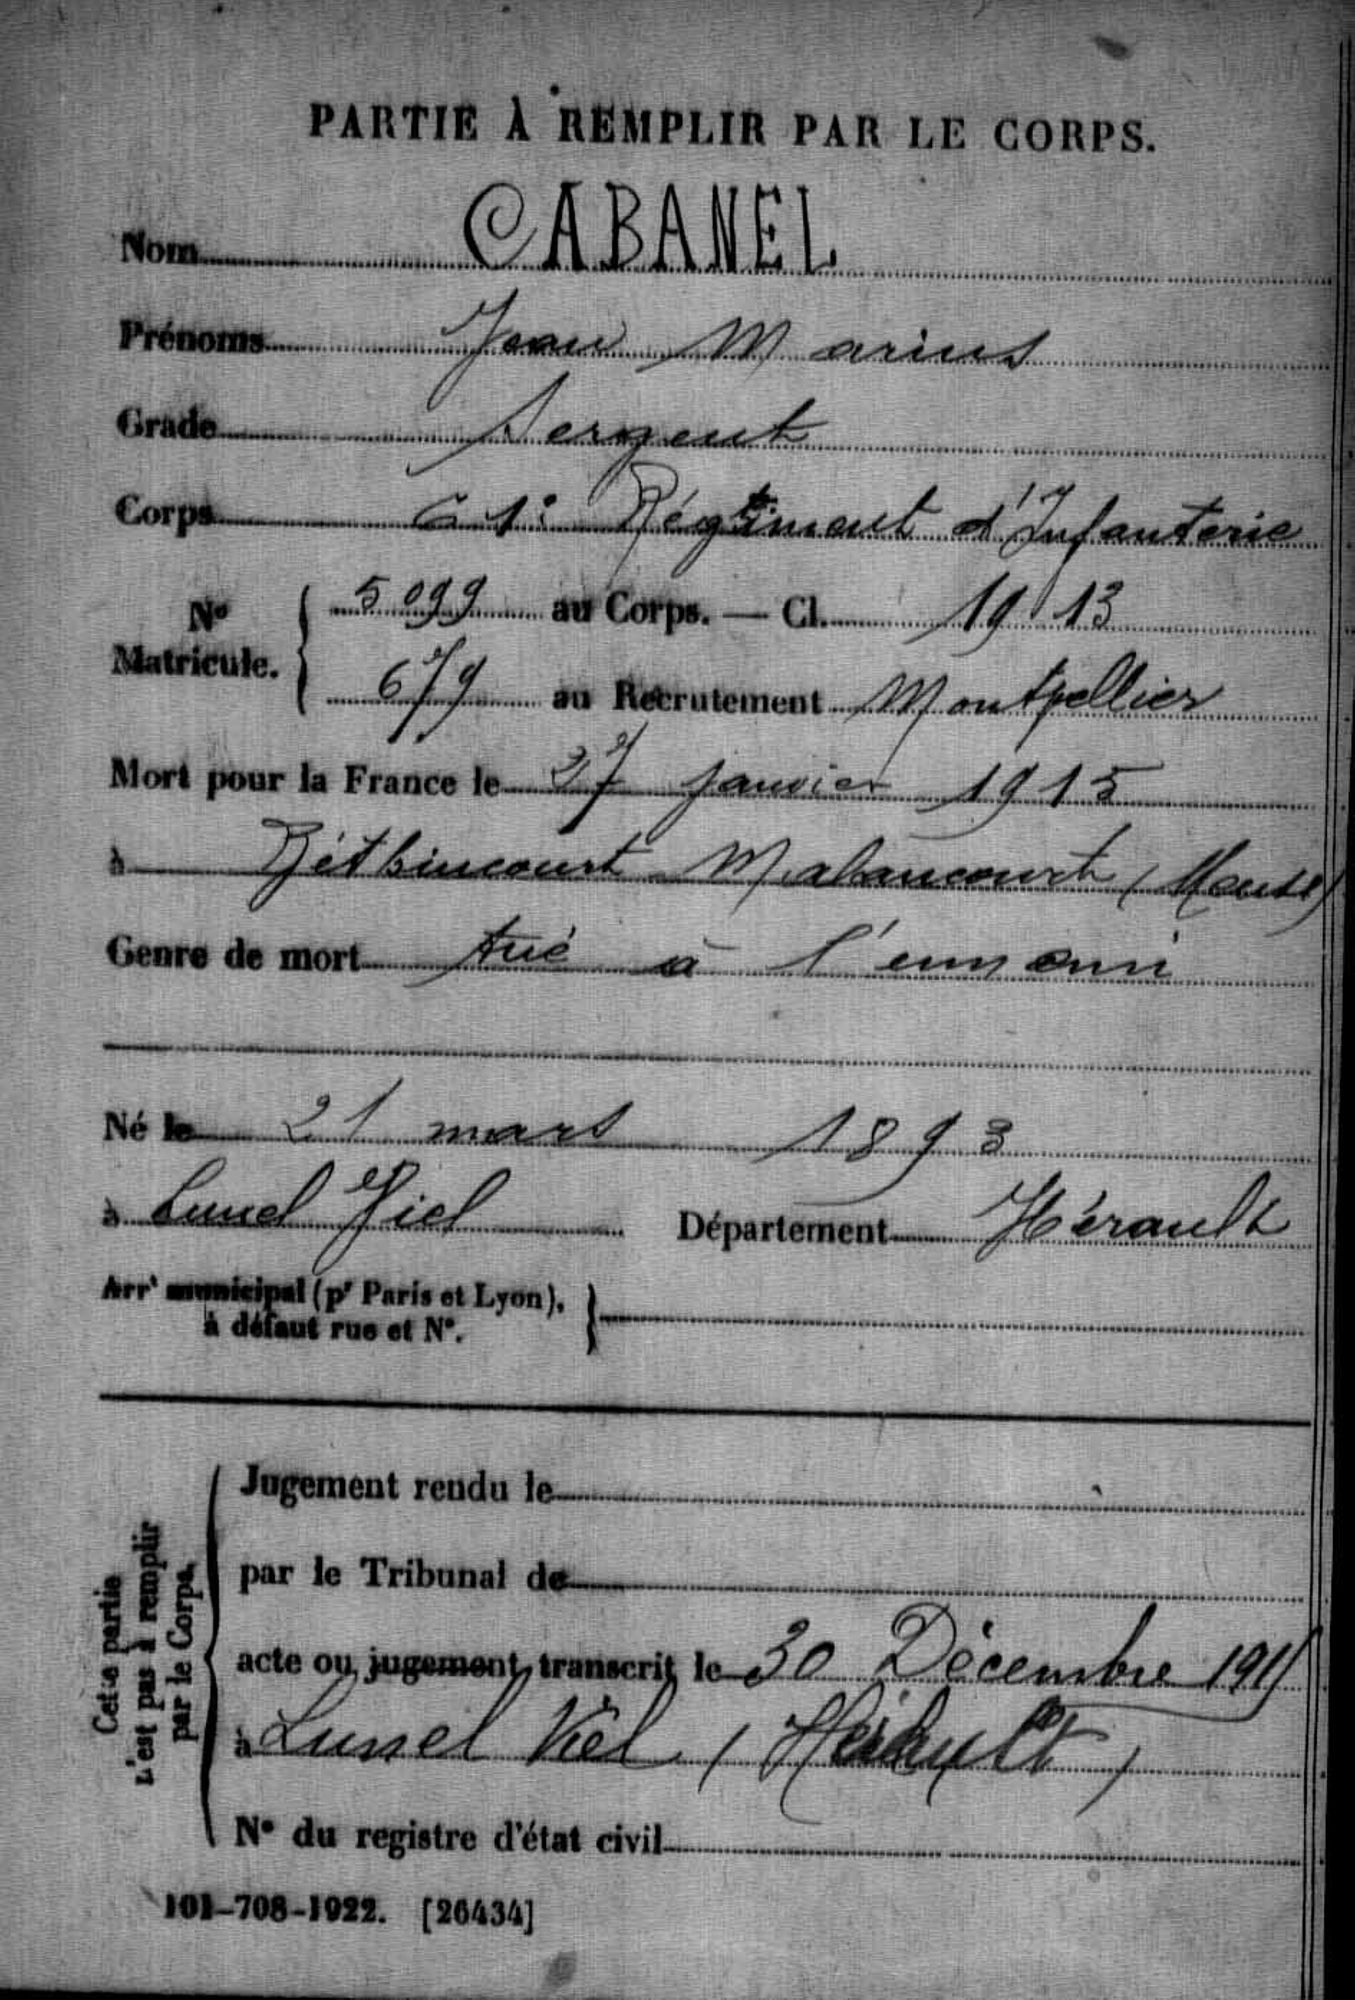 PARTIE À REMPLIR PAR LE CORPS.
Nom CABANEL
Prénoms Jean Marius
Grade Sergent
Corps 61e Régiment d'Infanterie
No Matricule. 5099 au Corps. — Cl. 1913
679 au Recrutement Montpellier
Mort pour la France le 27 janvier 1915
à Béthincourt Malancourt (Meuse)
Genre de mort tué à l'ennemi
Né le 21 mars 1893
à Lunel Viel Département Hérault
Arrt municipal (pr Paris et Lyon),
à défaut rue et No.
Cette partie
n'est pas à remplir
par le Corps.
Jugement rendu le
par le Tribunal de
acte ou jugement transcrit le 30 Décembre 1915
à Lunel Viel (Hérault)
No du registre d'état civil
101-708-1922. [26434]